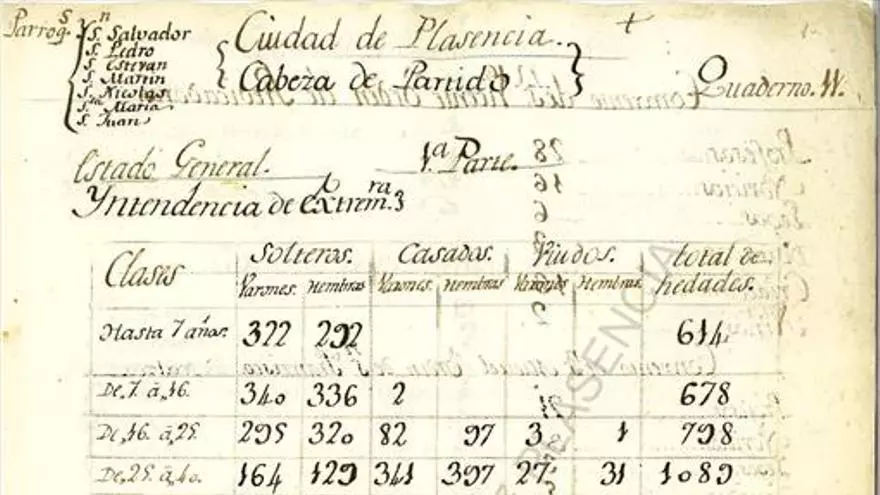 Parroq.s
Sn Salvador
S. Pedro
S. Estevan
S. Martin
S. Nicolas
Sta Maria
S. Juan
Ciudad de Plasencia.
Cabeza de Partido
Quaderno. 11.
Estado General. 1.a Parte.
Yntendencia de Extrem.ra
Clases Solteros. Casados. Viudos. total de
hedades.
Varones. Hembras Varones. Hembras Varones Hembras
Hasta 7 años. 322 292 614
De, 7. á, 16. 340 336 2 678
De, 16. á, 25. 295 320 82 97 3 1 798
De, 25. á, 40. 164 129 341 397 27 31 1089
PLASENCIA